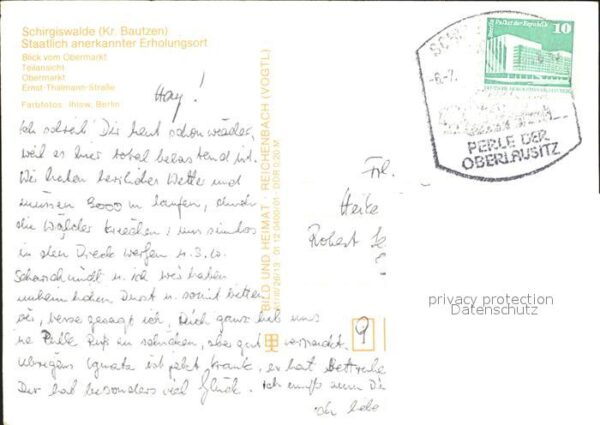 Schirgiswalde (Kr. Bautzen)
Staatlich anerkannter Erholungsort
Blick vom Obermarkt
Teilansicht
Obermarkt
Ernst-Thälmann-Straße
Farbfotos: Ihlow, Berlin
BILD UND HEIMAT · REICHENBACH (VOGTL)
01 12 0400/01 DDR 0,20 M
10
PERLE DER
OBERLAUSITZ
Hay!
Ich schreib' Dir heut schon wieder,
weil es hier total belastend ist.
Wir haben herrliches Wetter und
müssen 3000 m laufen, durch
die Wälder kriechen, uns sinnlos
in den Dreck werfen u.s.w.
u. ich wir haben
Durst u. somit bitten
wir, besser gesagt ich, Dich ganz lieb uns
ne Pulle zu schicken, aber gut verpackt.
Übrigens ist jetzt krank, er hat Bettruhe
Der hat besonders viel Glück. Ich muß nun
ich habe
Frl.
Heike
Robert
9
privacy protection
Datenschutz